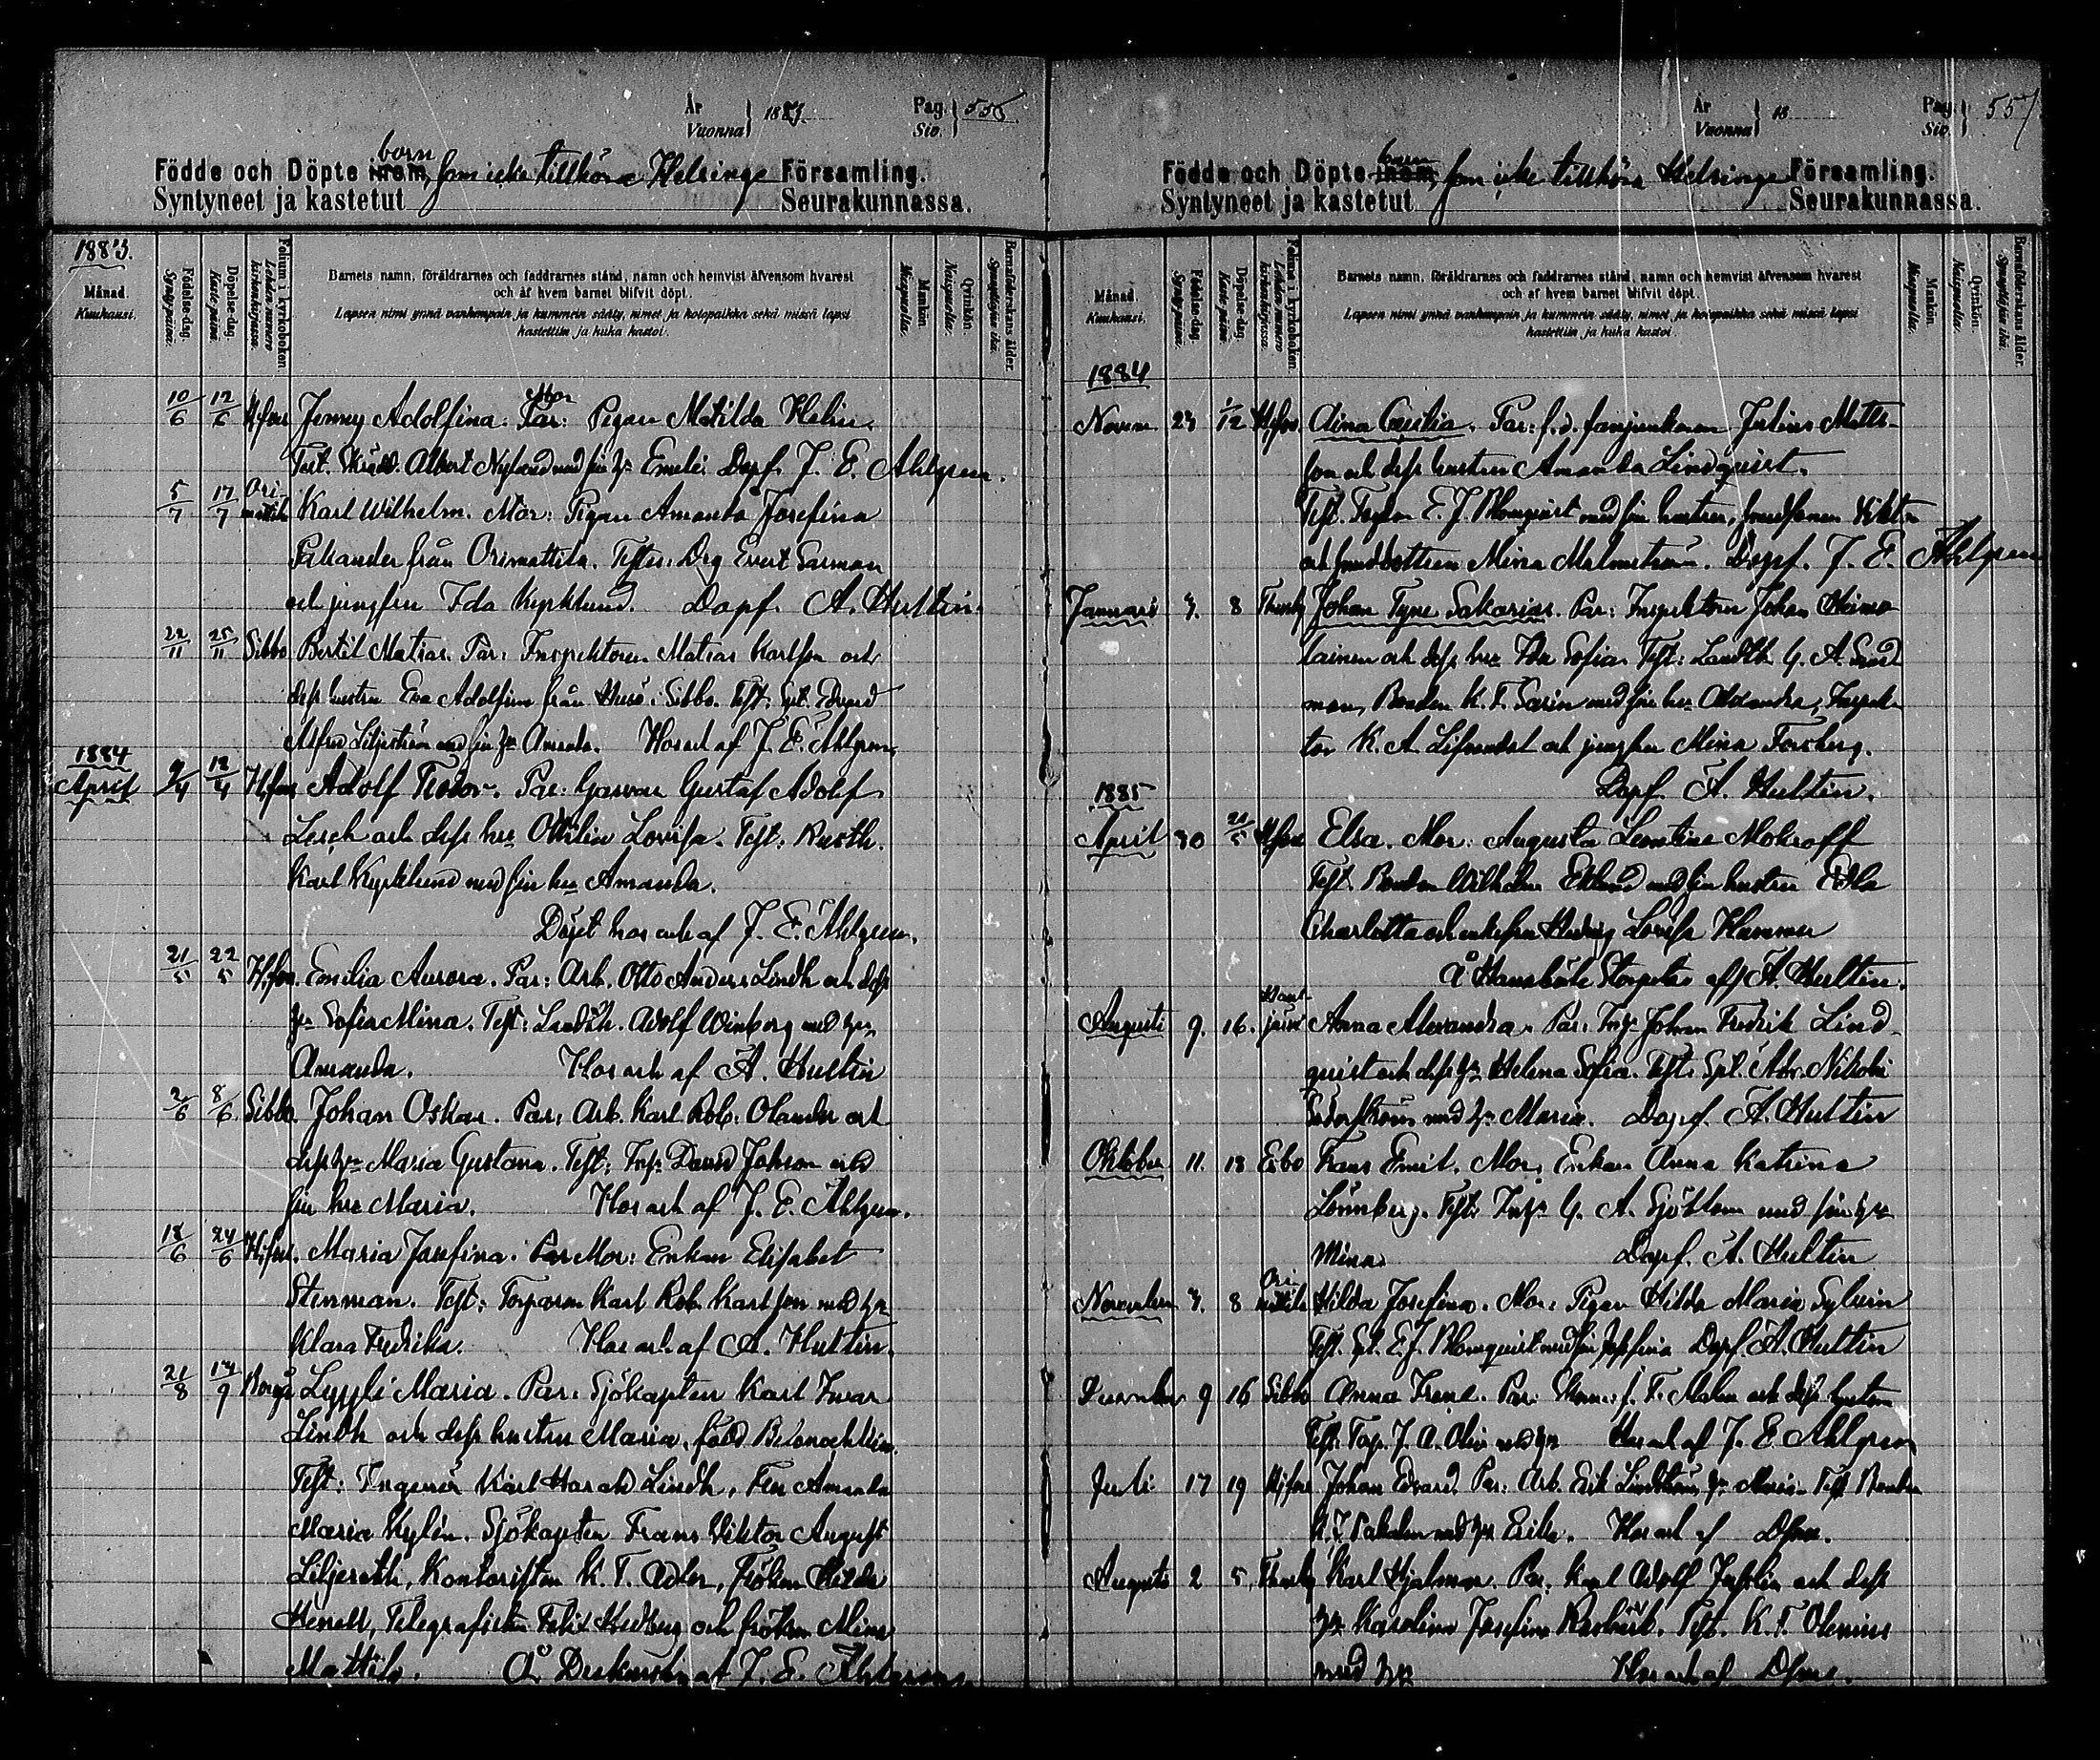 År
Vuonna } 1883. Pag.
Siv. } 556
Födde och Döpte inom barn, som icke tillhöra Helsinge Församling.
Syntyneet ja kastetut Seurakunnassa.
1883.
Månad.
Kuukausi.
Födelse-dag.
Syntypäivä.
Döpelse-dag.
Kaste-päivä.
Folium i kyrkoboken.
Lehden numero kirkonkirjassa.
Barnets namn, föräldrarnes och faddrarnes stånd, namn och hemvist äfvensom hvarest
och af hvem barnet blifvit döpt.
Lapsen nimi ynnä vanhempain ja kummein sääty, nimet ja kotopaikka sekä missä lapsi
kastettiin ja kuka kastoi.
Mankön.
Miespuolia.
Qvinkön.
Naispuolia.
Barnaföderskans ålder.
Synnyttäjän ikä.
10/6 12/6 H:fors Jenny Adolfina. Par: Mor Pigan Matilda Helin.
Test. Skrädd. Albert Nylund med sin h:u Emelie Döpf. J. E. Ahlgren.
5/7 17/7 Orimattila Karl Wilhelm. Mor: Pigan Amanda Josefina
från Orimattila. Testes: Drg Evert Sarman
och jungfru Ida Kyrklund. Döpf. A. Hultin.
22/11 25/11 Sibbo Bertil Matias. Par: Inspektoren Matias Karlsson och
dess hustru Eva Adolfina från Husö i Sibbo. Test: Spt. Edvard
Alfred Liljeström med sin h:u Amanda. Hos och af J. E. Ahlgren.
1884
April 9/4 12/4 H:fors Adolf Teodor. Par: Garvare Gustaf Adolf
Lesch och dess hu Ottilia Lovisa. Test: Rusth.
Karl Kyrklund med sin hu Amanda.
Döpt hos och af J. E. Ahlgren.
21/5 22/5 H:fors. Emilia Aurora. Par: Arb. Otto Anders Lindh och dess
h:u Sofia Mina. Test: Landth. Adolf Winberg med h:u
Amanda. Hos och af A. Hultin
2/6 8/6 Sibbo. Johan Oskar. Par: Arb. Karl Rob. Olander och
dess h:u Maria Gustava. Test: Insp. David Johnson med
sin hu Maria. Hos och af J. E. Ahlgren.
18/6 24/6 H:fors. Maria Josefina. Par Mor: Enkan Elisabet
Stenman. Test: Torparen Karl Rob. Karlsson med h:u
Klara Fredrika. Hos och af A. Hultin.
21/8 14/9 Borgå Lyyli Maria. Par: Sjökapten Karl Ivar
Lindh och dess hustru Maria, född
Test: Ingeniör Karl Harald Lindh, Fru Amanda
Maria Kylén. Sjökapten Frans Viktor August
Liljeroth, Kontoristen K. T. Adler, Fröken Hilda
Henell, Telegrafisten Felix Hedberg och fröken Mina
Mattila. Å af J. E. Ahlgren.
År
Vuonna } 18 Pag.
Siv. } 557
Födde och Döpte inom barn, som icke tillhöra Helsinge Församling.
Syntyneet ja kastetut Seurakunnassa.
Månad.
Kuukausi.
Födelse-dag.
Syntypäivä.
Döpelse-dag.
Kaste-päivä.
Folium i kyrkoboken.
Lehden numero kirkonkirjassa.
Barnets namn, föräldrarnes och faddrarnes stånd, namn och hemvist äfvensom hvarest
och af hvem barnet blifvit döpt.
Lapsen nimi ynnä vanhempain ja kummein sääty, nimet ja kotopaikka sekä missä lapsi
kastettiin ja kuka kastoi.
Mankön.
Miespuolia.
Qvinkön.
Naispuolia.
Barnaföderskans ålder.
Synnyttäjän ikä.
1884
Novem. 23 1/12 H:fors Aina Cecilia. Par: f.d. fanjunkaren Julius Matts-
son och dess hustru Amanda Lindqvist.
Test. E. J. Blomqvist med sin hustru, Viktor
och Mina Malmström. Döpf. J. E. Ahlgren
Januari 3. 8 Thusby Johan Tyne Sakarias. Par: Inspektoren Johan Heimo-
lainen och dess hu Ida Sofia. Test: Landth G. A. Sand
man, Bonden K. F. Sarin med sin hu Alexandra, Inspek-
tor K. A. och jungfru Mina Forsberg.
Döpf. A. Hultin.
1885
April 30 21/5 H:fors Elsa. Mor: Augusta Leontina Mokroff
Test. Bonden Wilhelm Eklund med sin hustru Edla
Charlotta och enkefru Hedvig Lovisa Hammar
Å Hansböle Storgårds af A. Hultin.
Augusti 9. 16. Anna Alexandra. Par: Insp Johan Fredrik Lind-
qvist och dess h:u Helena Sofia. Test: Spt. Adr. Nikolai
med h:u Maria. Döpf. A. Hultin
Oktober 11. 18 Esbo Frans Emil. Mor: Enkan Anna Katrina
Lönnberg. Test: Insp. G. A. Sjöblom med sin h:u
Mina. Döpf. A. Hultin
November 3. 8 Orimattila Hilda Josefina. Mor: Pigan Hilda Maria Sylvin
Test. Spt. E. J. Blomqvist med sin Josefina Döpf. A. Hultin
December 9 16 Sibbo Anna Irene. Par: F. Malm och dess hustru
Test. Torp. J. A. med h:u Hos och af J. E. Ahlgren
Juli 17 19 H:fors Johan Edvard. Par: Arb. Erik Lindström, h:u Maria. Test Bonden
med h:u Erika. Hos och af Dsme.
Augusti 2 5. Thusby Karl Hjalmar. Par: Karl Adolf och dess
h:u Karolina Josefina Test. K. F. Olenius
med h:u Hos och af Dsme.